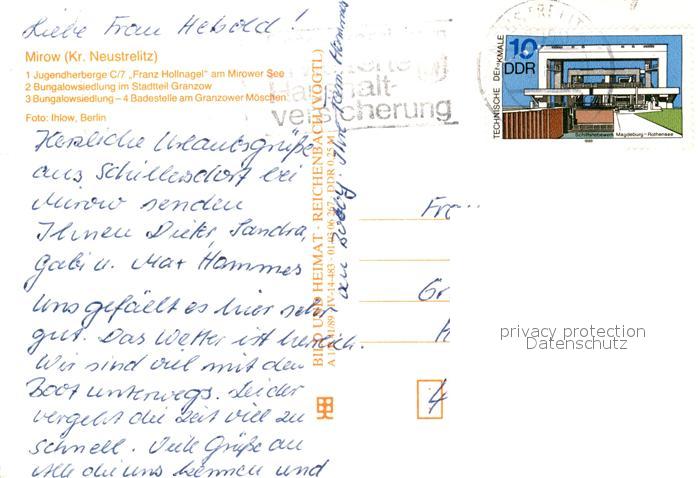 Liebe Frau Hebold!
Mirow (Kr. Neustrelitz)
1 Jugendherberge C/7 „Franz Hollnagel" am Mirower See
2 Bungalowsiedlung im Stadtteil Granzow
3 Bungalowsiedlung – 4 Badestelle am Granzower Möschen
Foto: Ihlow, Berlin
Herzliche Urlaubsgrüße
aus Schillersdorf bei
Mirow senden
Ihnen Dieter, Sandra,
Gabi u. Max Hammes
Uns gefällt es hier sehr
gut. Das Wetter ist herrlich.
Wir sind viel mit dem
Boot unterwegs. Leider
vergeht die Zeit viel zu
schnell. Viele Grüße an
alle die uns kennen und
an Bobby. Ihre Fam. Hammes
BILD UND HEIMAT · REICHENBACH (VOGTL)
A 1/ /89 IV-14-483 · 01 03 06 267 DDR 0,25 M
Haushalt-
versicherung
TECHNISCHE DENKMALE
10
DDR
Schiffshebewerk Magdeburg-Rothensee
1988
Fra...
Gr
4
privacy protection
Datenschutz